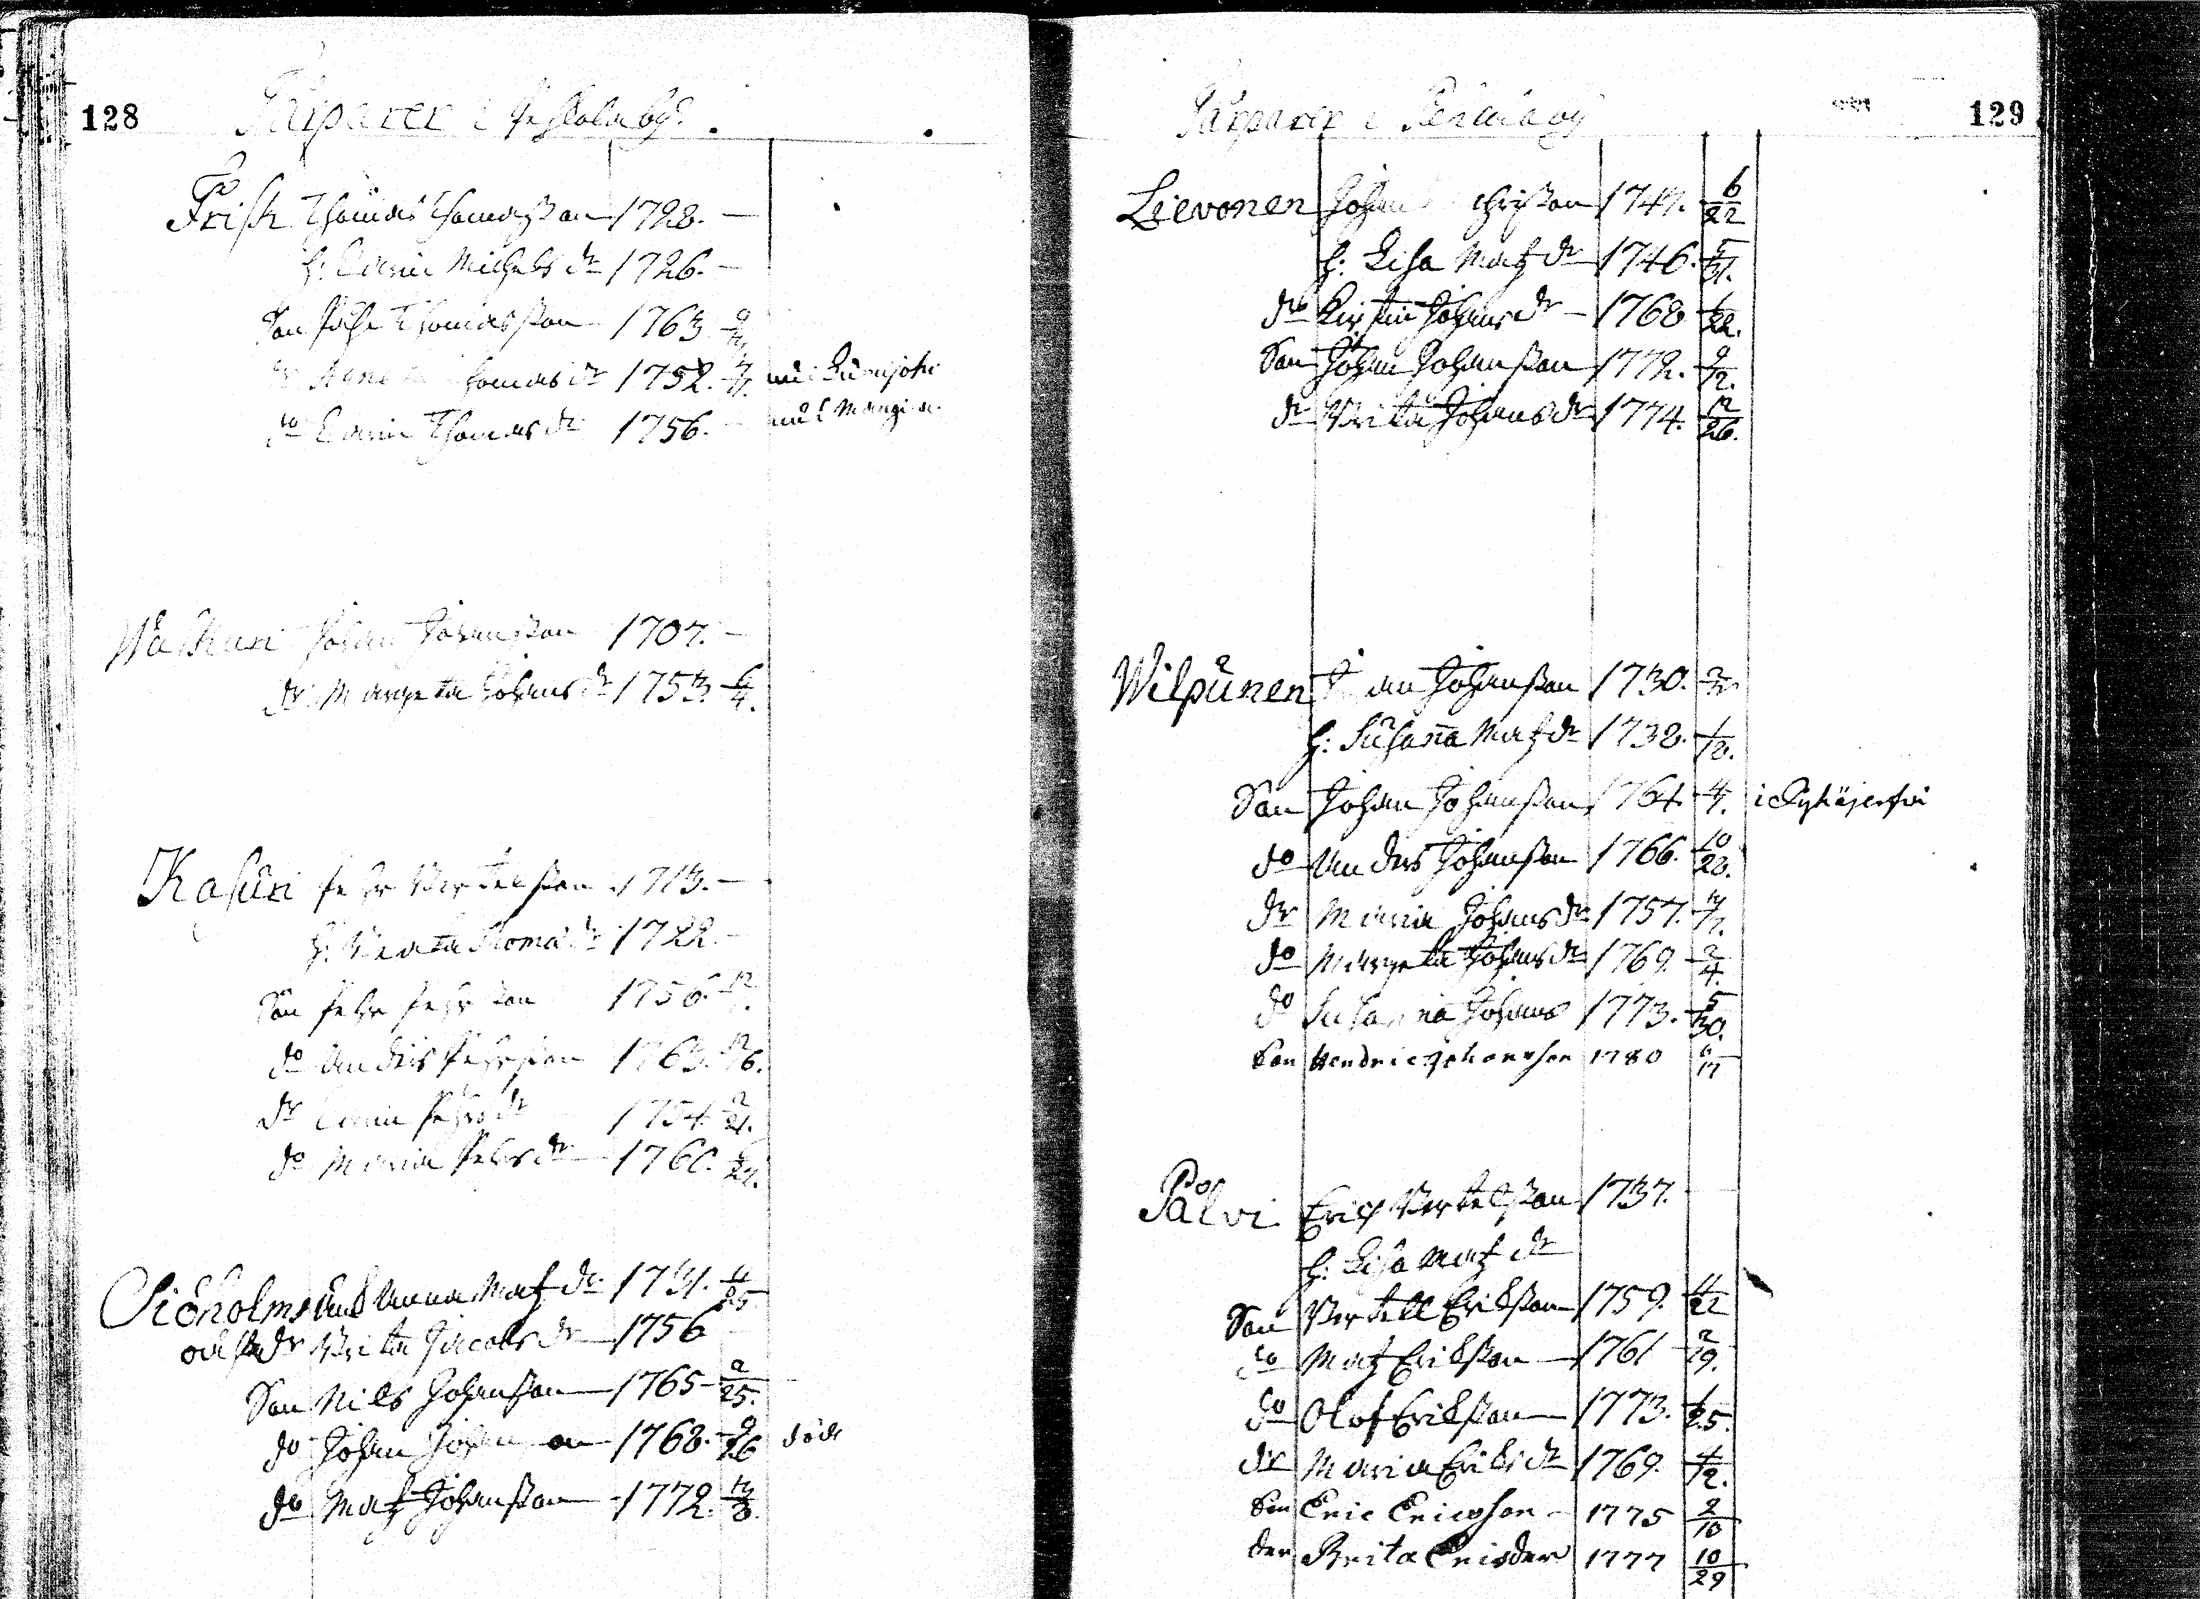 128
Torparer i Peskola by
Frisk Thomas Thomasson 1728. —
h: Carin Michels dr 1726. —
Son Påhl Thomasson 1763
dr Thomas dr 1752.
do Carin Thomas dr 1756. —
Waskuri Johan Johansson 1707. —
dr Margeta Johans dr 1753. 6/4.
Kasuri Pehr Bertelsson 1713. —
h: Beata Thomas dr 1722. —
Son Pehr Pehrsson 1756. 12
do Anders Pehrsson 1763. 12/6.
dr Carin Pehrs dr 1754. 2/21.
do Maria Pehrs dr 1760.
Siöholms Anna Matz dr 1731. 4/25
dr Brita Jacobs dr 1756
Son Nils Johansson 1765 — 2/25.
do Johan Johansson 1768. 9/26 död
do Matz Johansson 1772. 12/8.
129
Torparer i by
Lievonen Johan 1747. 6/22
h: Lisa Matz dr 1746. 5/31.
dr Kirstin Johans dr — 1768 1/22.
Son Johan Johansson 1772. 9/12.
dr Brita Johans dr 1774. 12/26.
Wilpunen Johan Johansson 1730.
h: Susanna Matz dr 1738. 1/18.
Son Johan Johansson 1764. 4/7. i
do Anders Johansson 1766. 10/28.
dr Maria Johans dr 1757. 12/7.
do Margeta Johans dr 1769. 2/4.
do Susanna Johans 1773. 5/30.
Son Hendric Johansson 1780 6/17
Pålvi Erich Bertelsson 1737.
h: Lisa Matz dr
Son Bertell Eriksson 1759. 4/22
do Matz Eriksson 1761 2/19.
do Olof Eriksson 1773. 1/25.
dr Maria Eriks dr 1769. 4/12.
Son Eric Ericsson — 1775 2/10
der Brita Erisder 1777 10/29